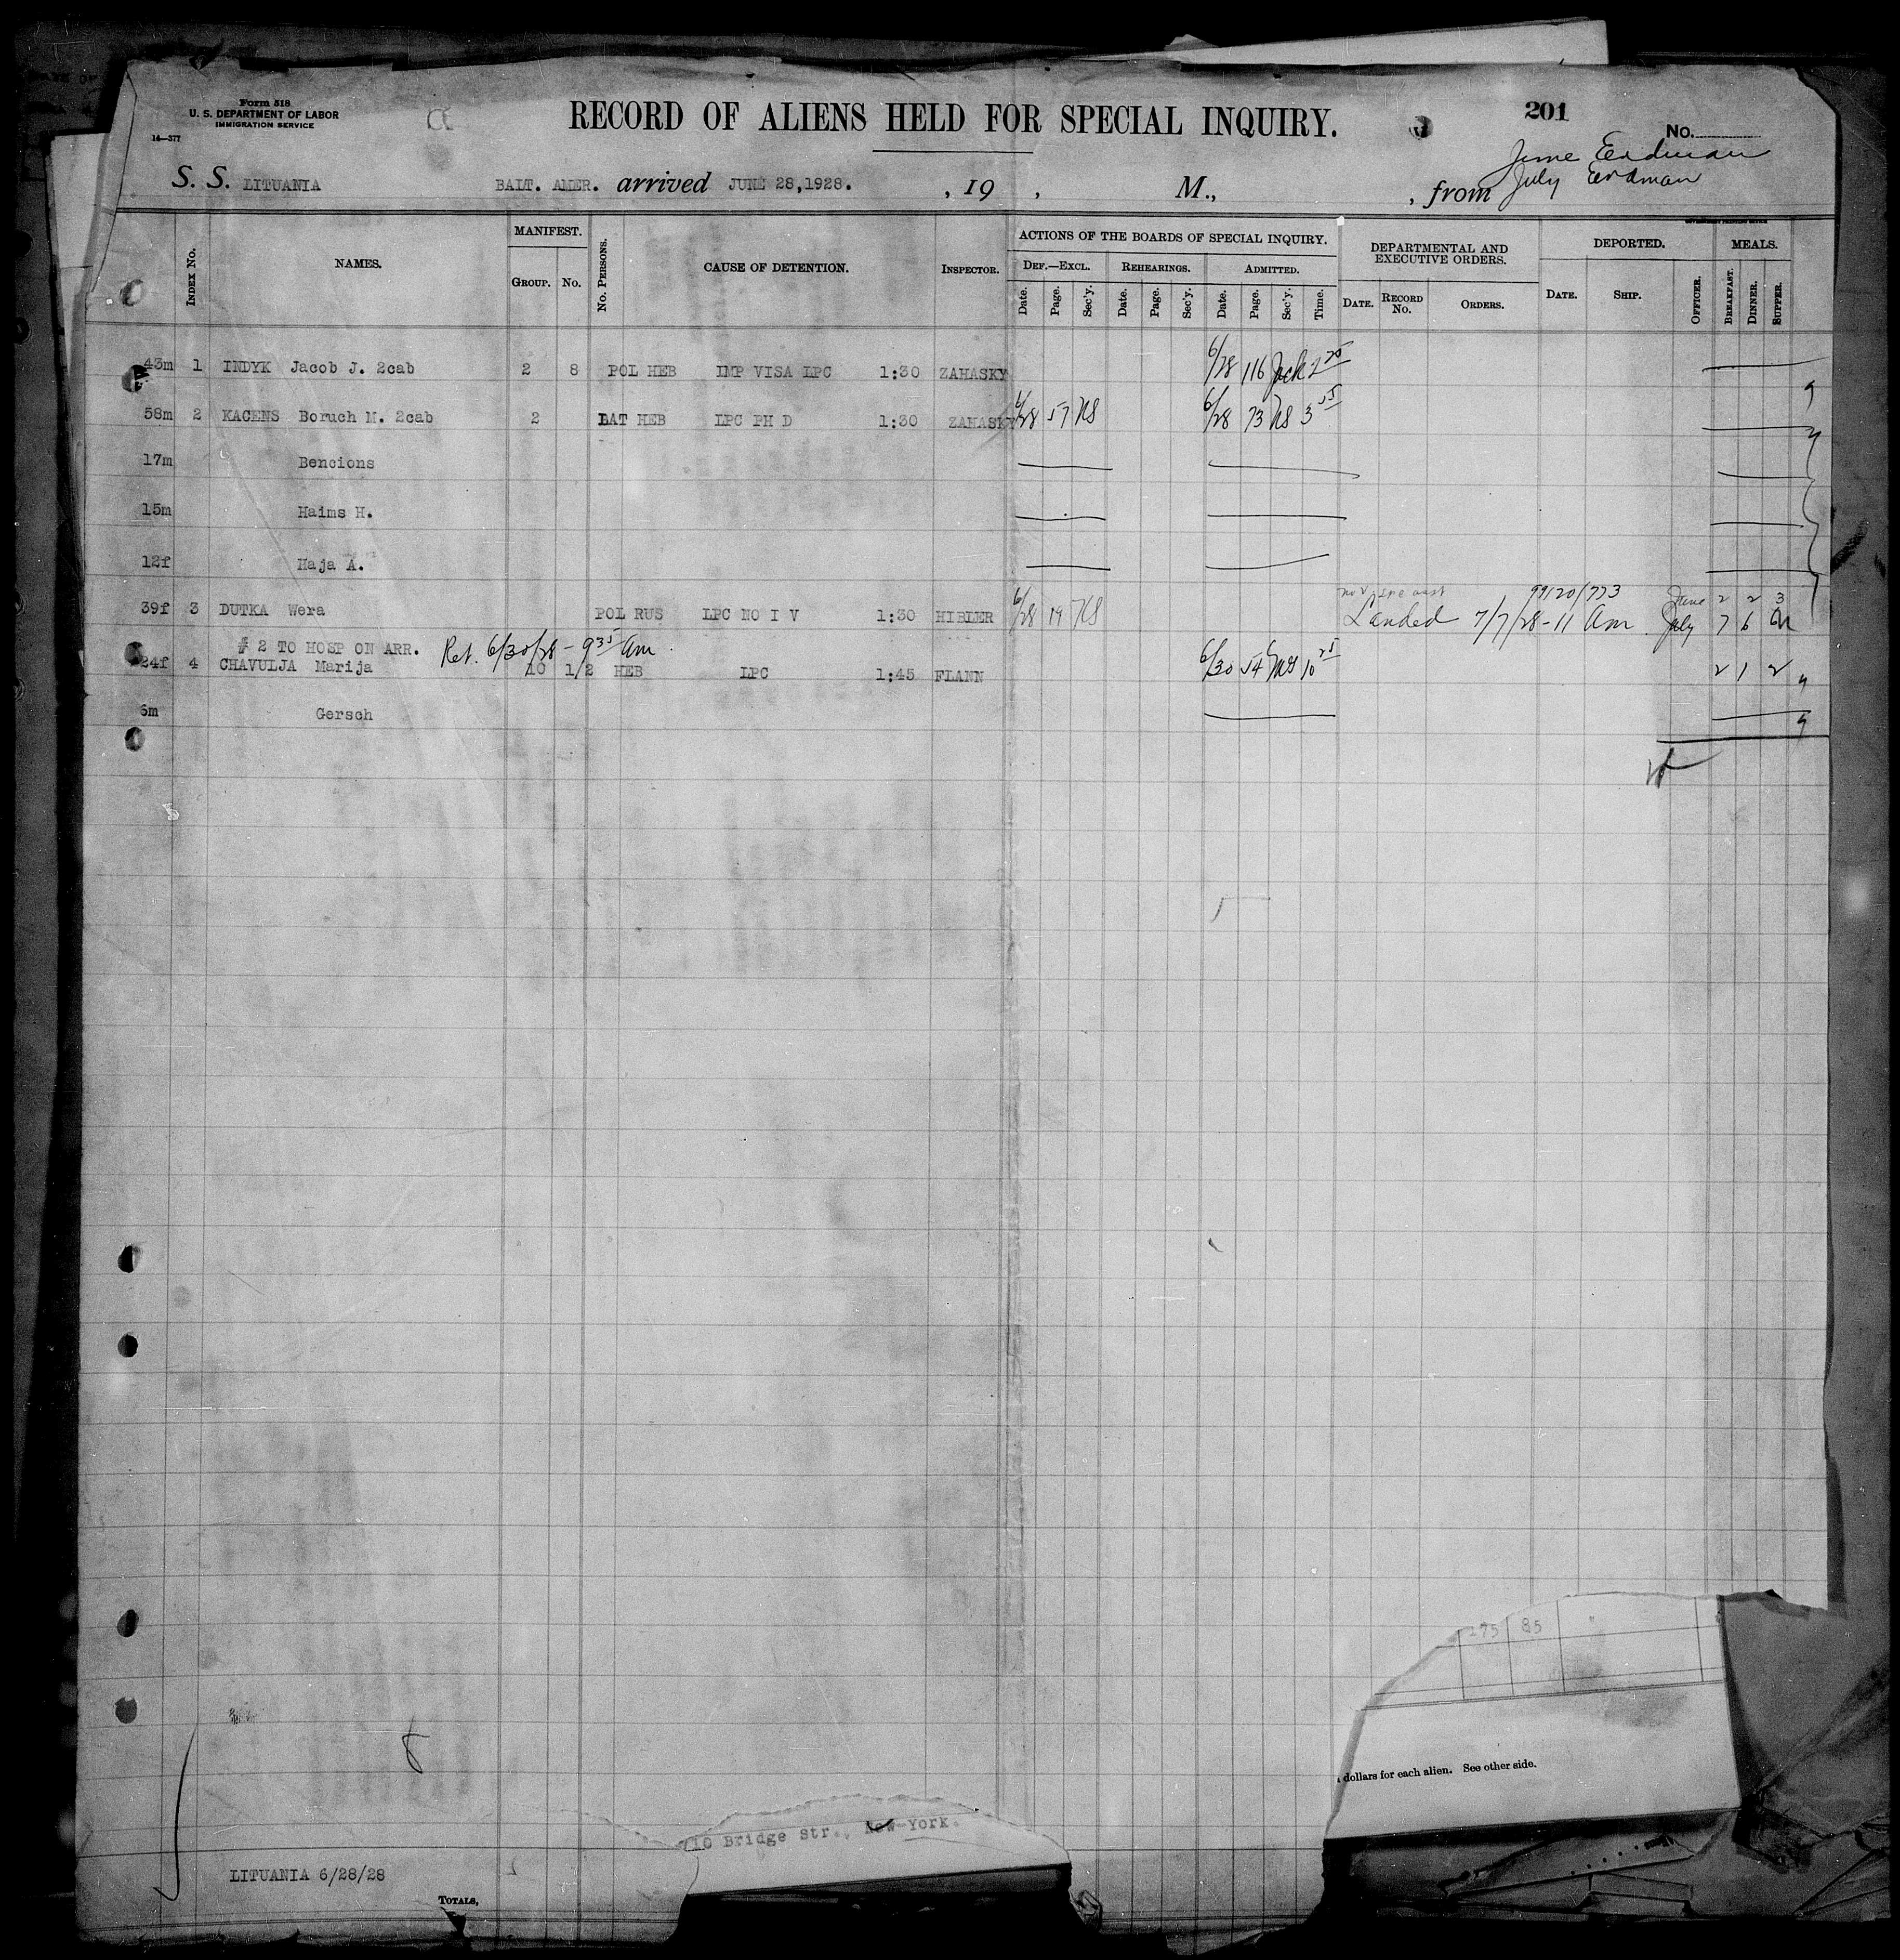 Form 518
U. S. DEPARTMENT OF LABOR
IMMIGRATION SERVICE
14—377
RECORD OF ALIENS HELD FOR SPECIAL INQUIRY.
201
No.
June Erdman
S. S. LITUANIA BALT. AMER. arrived JUNE 28,1928. , 19 , M., , from July Erdman
INDEX No. NAMES. MANIFEST. GROUP. No. No. PERSONS. CAUSE OF DETENTION. INSPECTOR. ACTIONS OF THE BOARDS OF SPECIAL INQUIRY. DEF.—EXCL. Date. Page. Sec'y. REHEARINGS. Date. Page. Sec'y. ADMITTED. Date. Page. Sec'y. Time. DEPARTMENTAL AND EXECUTIVE ORDERS. DATE. RECORD No. ORDERS. DEPORTED. DATE. SHIP. OFFICER. MEALS. BREAKFAST. DINNER. SUPPER.
43m 1 INDYK Jacob J. 2cab 2 8 POL HEB IMP VISA LPC 1:30 ZAHASKY 6/28 116
58m 2 KACENS Boruch M. 2cab 2 LAT HEB LPC PH D 1:30 ZAHASKY 6/28 57 NS 6/28 73 NS 3 55
17m Bencions
15m Haims H.
12f Haja A.
99120/773
39f 3 DUTKA Wera POL RUS LPC NO I V 1:30 HIBLER 6/28 19 NS Landed 7/7/28-11 am June 2 2 3 July 7 6
# 2 TO HOSP ON ARR. Ret. 6/30/28 - 9 35 am
24f 4 CHAVULJA Marija 10 1/2 HEB LPC 1:45 FLANN 6/30 54 10 25 2 1 2
6m Gersch
175 85
dollars for each alien. See other side.
8
710 Bridge Str., New-York.
LITUANIA 6/28/28
TOTALS,